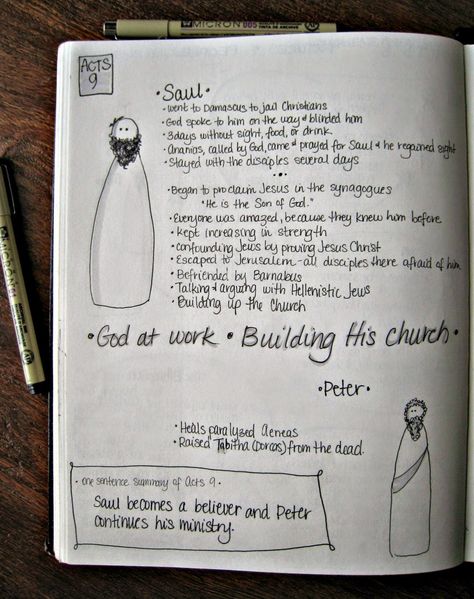 MICRON 005
ACTS
9
• Saul •
• went to Damascus to jail Christians
• God spoke to him on the way & blinded him
• 3 days without sight, food, or drink.
• Ananias, called by God, came & prayed for Saul & he regained sight
• Stayed with the disciples several days
•••
• Began to proclaim Jesus in the synagogues
"He is the Son of God."
• Everyone was amazed, because they knew him before
• Kept increasing in strength
• confounding Jews by proving Jesus Christ
• Escaped to Jerusalem - all disciples there afraid of him
• Befriended by Barnabus
• Talking & arguing with Hellenistic Jews
• Building up the Church
• God at work • Building His church •
• Peter •
• Heals paralyzed Aeneas
• Raised Tabitha (Dorcas) from the dead.
• One sentence summary of Acts 9 •
Saul becomes a believer and Peter
continues his ministry.